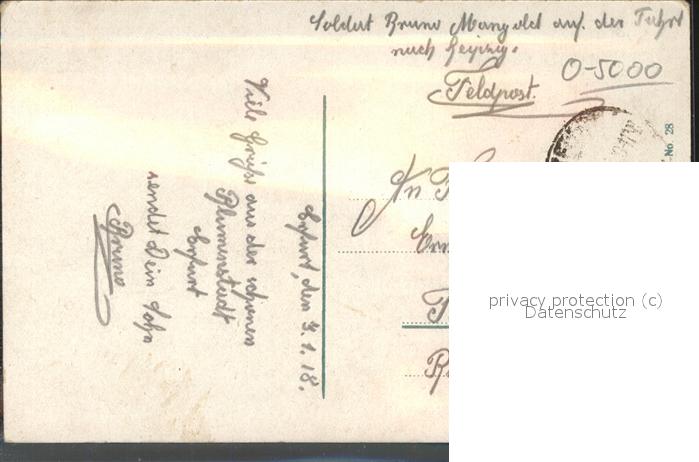 Soldat Bruno Mangold auf der Fahrt
nach Leipzig.
Feldpost.
O-5000
No. 28
An
Erfurt, den 3.1.18.
Viele Grüße aus der schönen
Blumenstadt
Erfurt
sendet Dein Sohn
Bruno
privacy protection (c)
Datenschutz